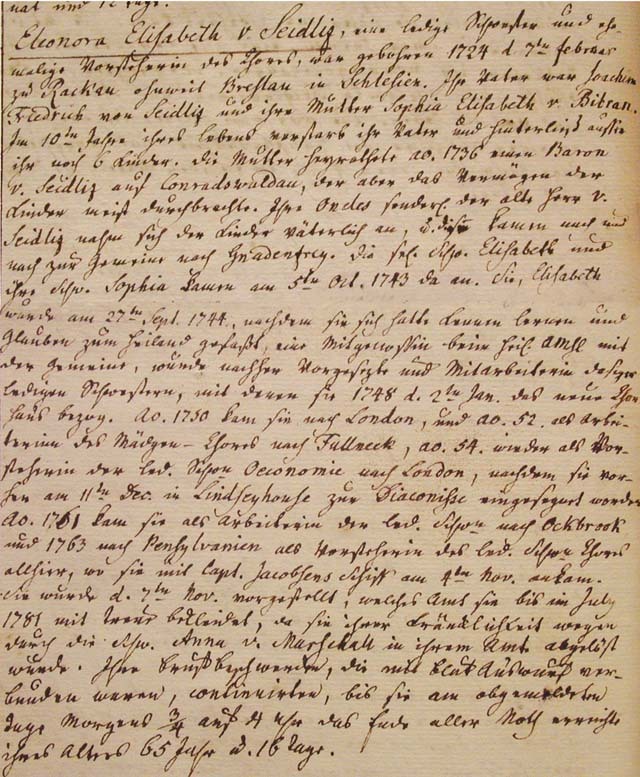 nat und 12 Tage.
Eleonora Elisabeth v. Seidliz, eine ledige Schwester und ehe-
malige Vorsteherin des Chores, war gebohren 1724 d. 7tn Februar
zu Rackau ohnweit Breslau in Schlesien. Ihr Vater war Joachim
Friedrich von Seidliz und ihre Mutter Sophia Elisabeth v. Bibran.
Im 10tn Jahre ihres Lebens verstarb ihr Vater und hinterließ ausser
ihr noch 6 Kinder. Die Mutter heyrathete ao. 1736 einen Baron
v. Seidliz auf Conradswaldau, der aber das Vermögen der
Kinder meist durchbrachte. Ihre Oncles sonderl. der alte Herr v.
Seidliz nahm sich der Kinder väterlich an, u. diese kamen nach und
nach zur Gemeine nach Gnadenfrey. Die sel. Schw. Elisabeth und
ihre Schw. Sophia kamen am 5tn Oct. 1743 da an. Sie, Elisabeth
wurde am 27tn Sept. 1744, nachdem sie sich hatte kennen lernen und
Glauben zum Heiland gefaßt, eine Mitgenossin beim heil. Amll mit
der Gemeine, wurde nachher Vorgesezte und Mitarbeiterin dasiger
ledigen Schwestern, mit denen sie 1748 d. 2tn Jan. das neue Chor
Haus bezog. Ao. 1750 kam sie nach London, und ao. 52. als Arbei-
terin des Mädgen-Chores nach Fullneck, ao. 54. wieder als Vor-
steherin der led. Schwn Oeconomie nach London, nachdem sie vor-
her am 11tn Dec. in Lindseyhouse zur Diaconisse eingesegnet worden
Ao. 1761 kam sie als Arbeiterin der led. Schwn nach Ockbrook
und 1763 nach Pensylvanien als Vorsteherin des led. Schwn Chors
allhier, wo sie mit Capt. Jacobsens Schiff am 4tn Nov. ankam.
Sie wurde d. 7tn Nov. vorgestellt, welches Amt sie bis im July
1781 mit Treue bekleidet, da sie ihrer Kränklichkeit wegen
durch die Schw. Anna v. Marschall in ihrem Amt abgelöst
wurde. Ihre Brustbeschwerden, die mit Blut Auswurf ver-
bunden waren, continuirten, bis sie am obgemeldeten
Tage Morgens 3/4 auf 4 Uhr das Ende aller Noth erreichte
ihres Alters 65 Jahr u. 16 Tage.